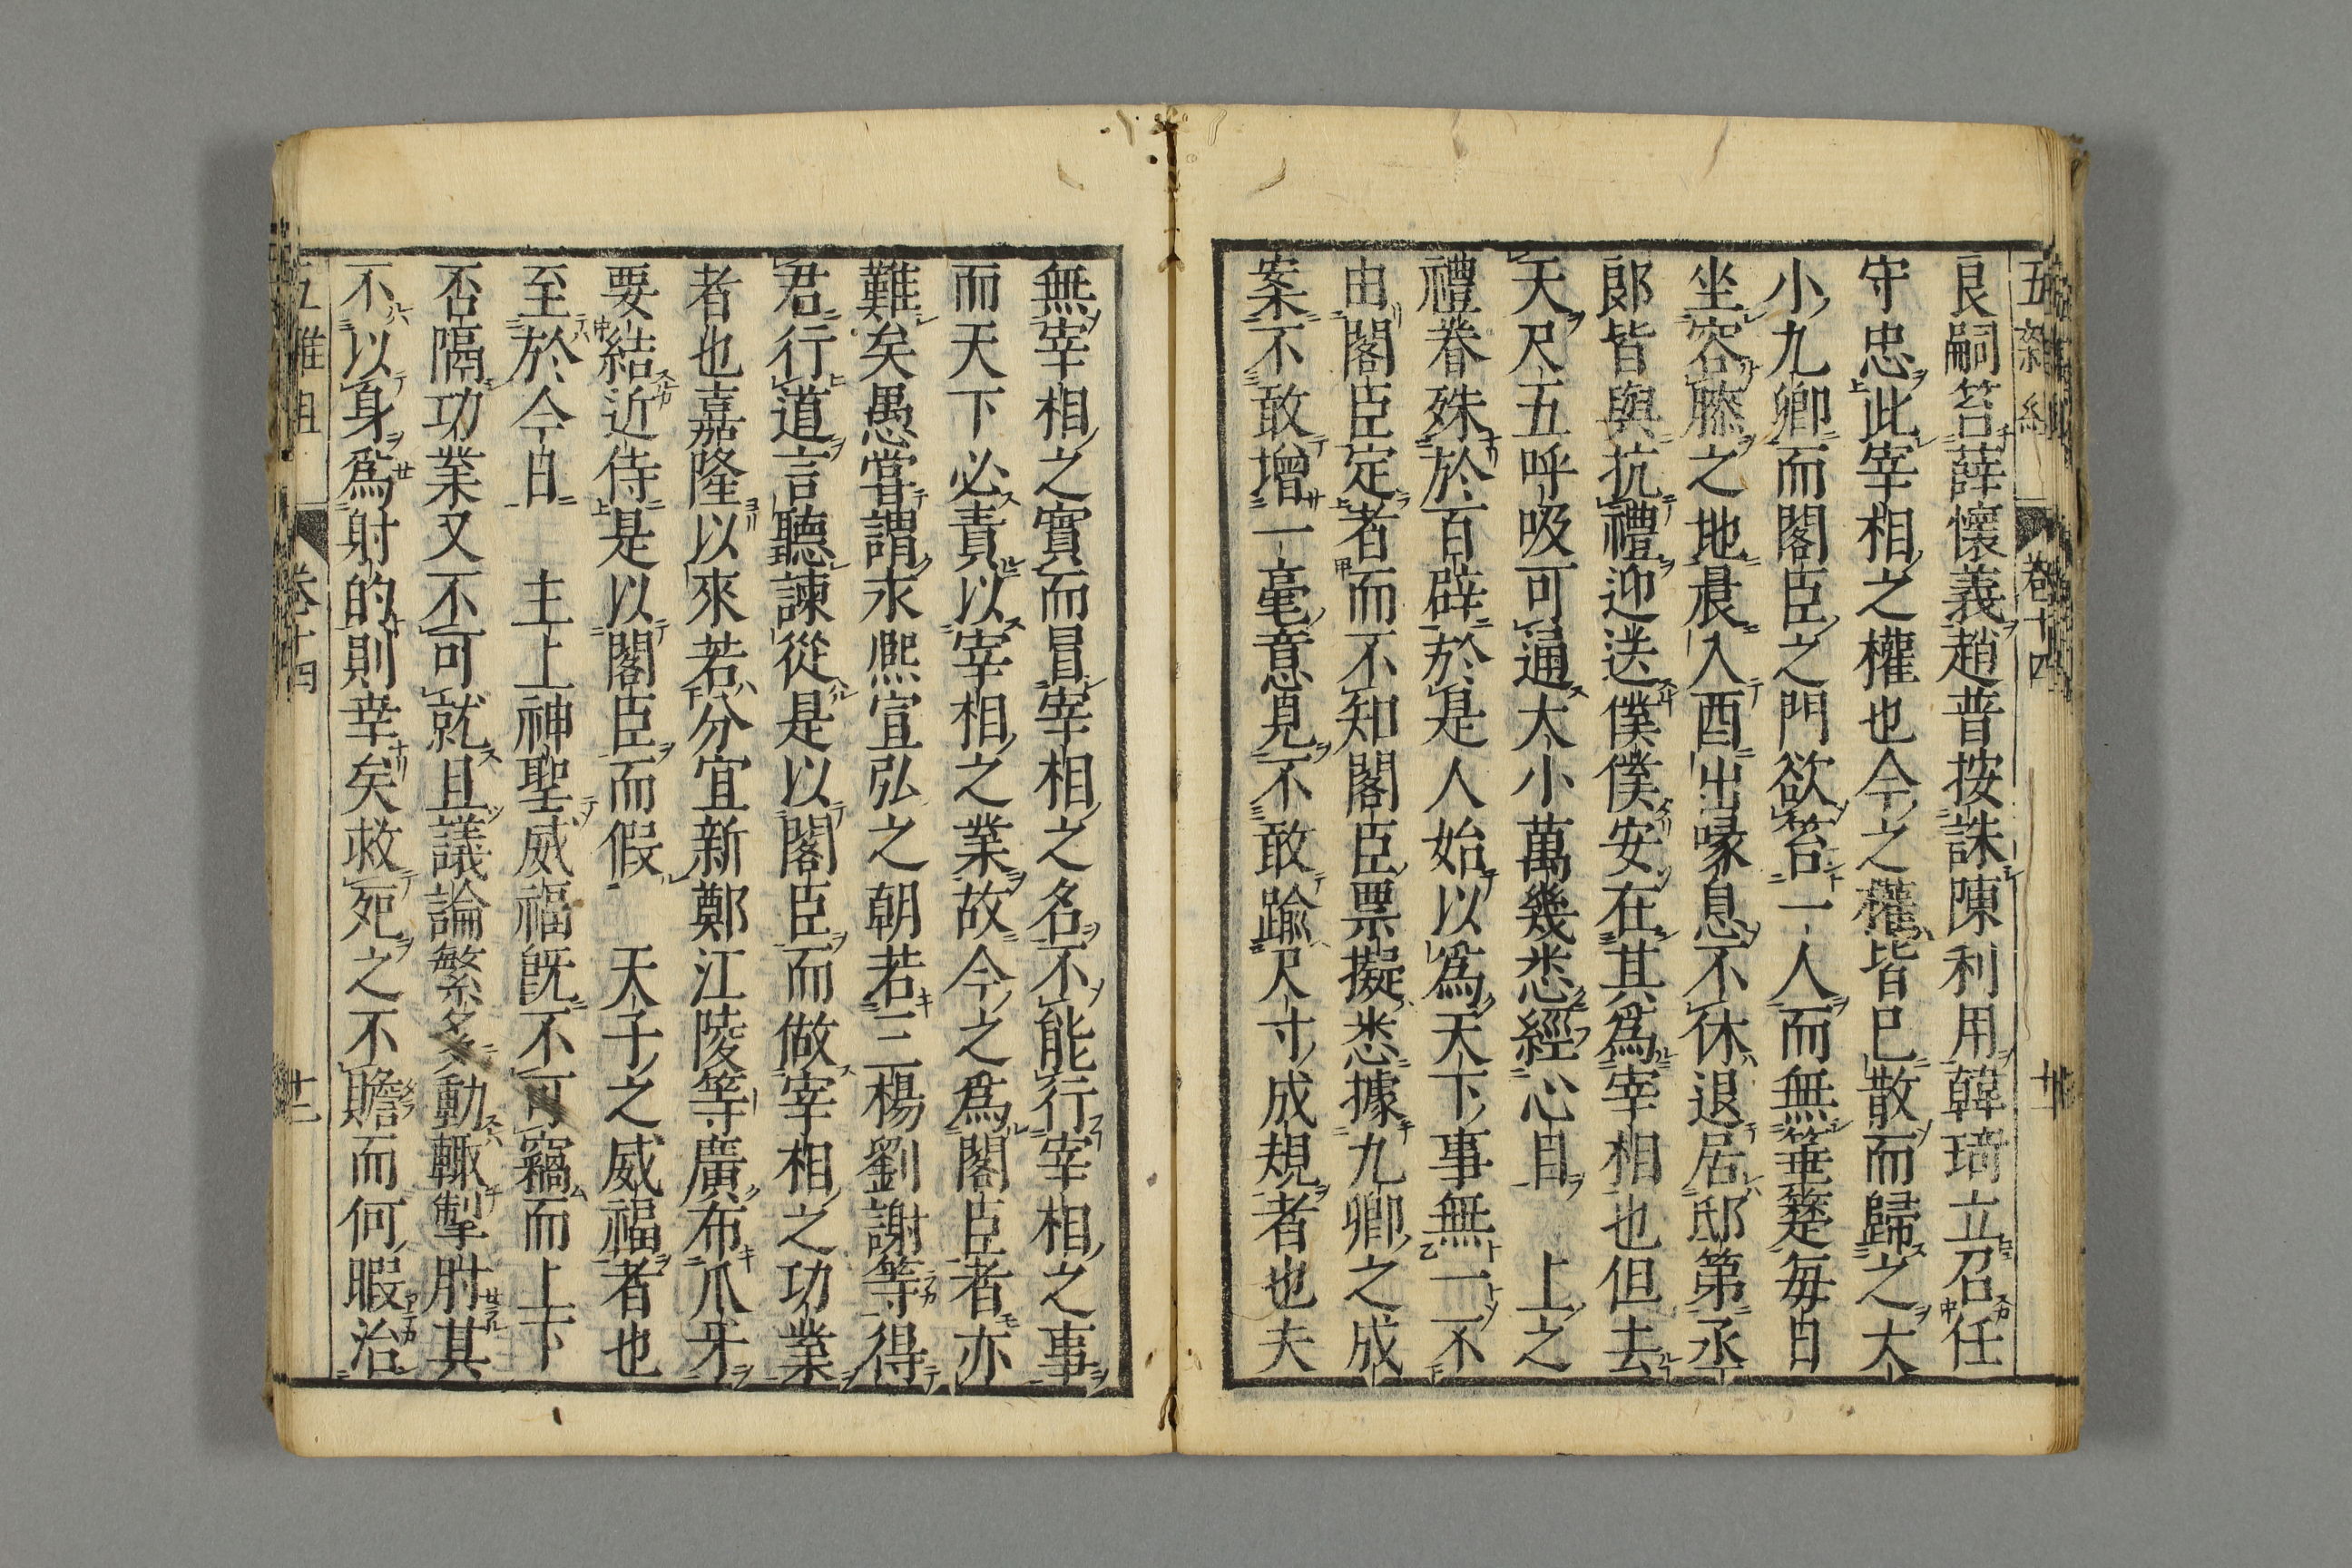 良嗣笞薛懷義趙普按誅陳利用韓琦立召任
守忠此宰相之權也今之權皆已散而歸之大
小九卿而閣臣之門欲笞一人而無箠䇿每日
坐容膝之地晨入酉出喙息不休退居邸第丞
郎皆與抗禮迎送僕僕安在其爲宰相也但去
天尺五呼吸可通大小萬幾悉經心目　上之
禮眷殊於百辟於是人始以爲天下事無一不
由閣臣定者而不知閣臣票擬悉據九卿之成
案不敢增一毫意見不敢踰尺寸成規者也夫
無宰相之實而冒宰相之名不能行宰相之事
而天下必責以宰相之業故今之爲閣臣者亦
難矣愚嘗謂永熙宣弘之朝若三楊劉謝等得
君行道言聽諫從是以閣臣而做宰相之功業
者也嘉隆以來若分宜新鄭江陵等廣布爪牙
要結近侍是以閣臣而假　天子之威福者也
至於今日　主上神聖威福旣不可竊而上下
否隔功業又不可就且議論繁多動輒掣肘其
不以身爲射的則幸矣救死之不贍而何暇治
卷十四